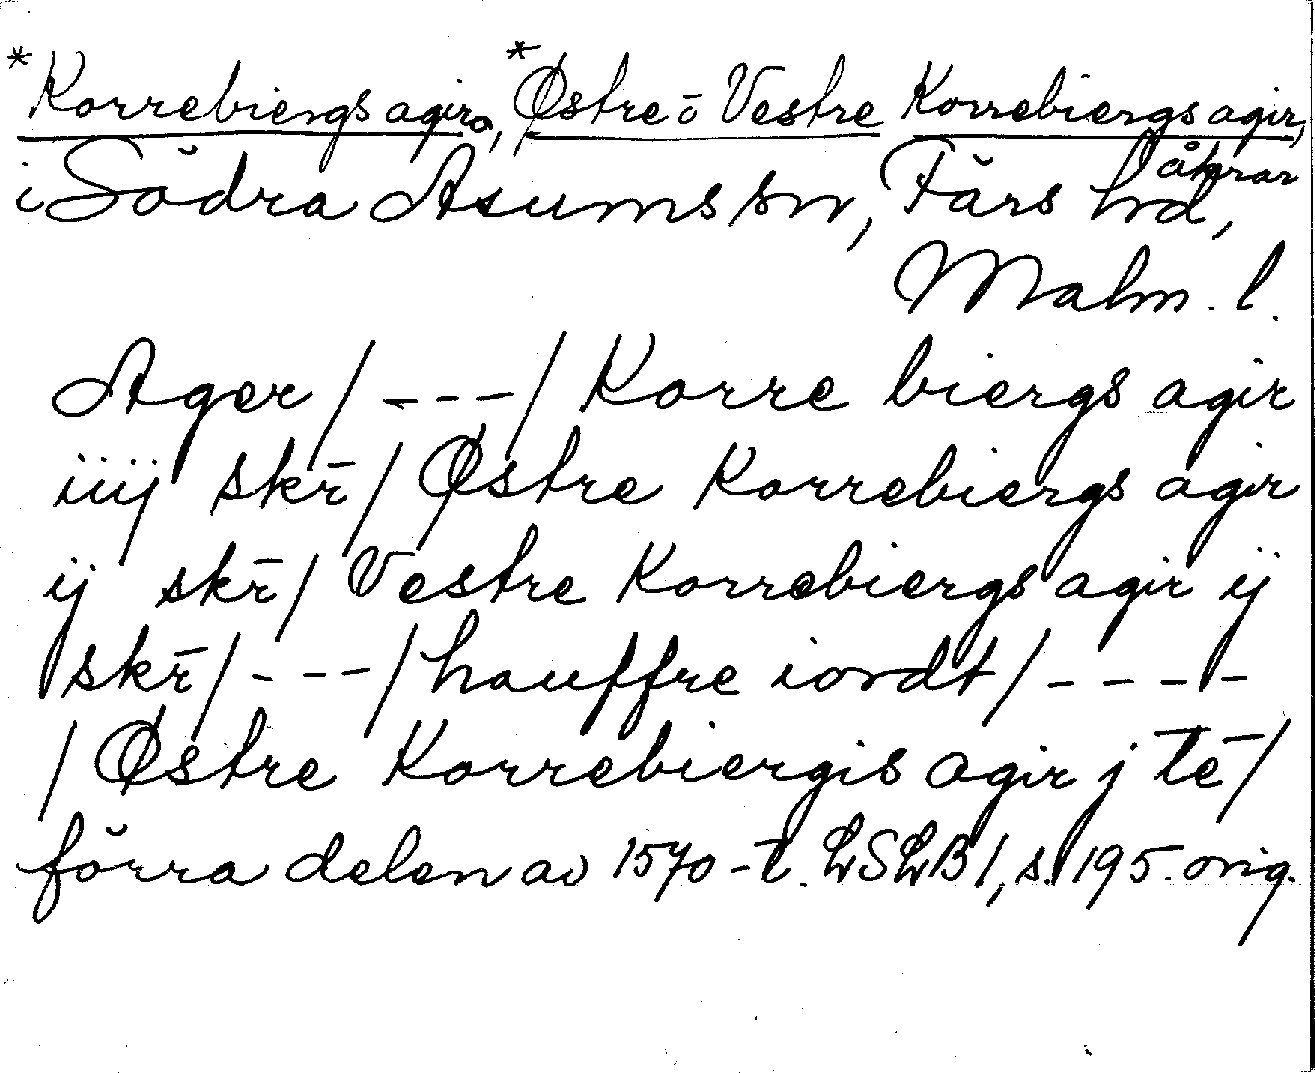 *Korrebiergs agir, *Østre ō Vestre Korrebiergs agir,
åkrar
i Södra Åsums sn, Färs hd,
Malm. l.
Ager / --- / Korre biergs agir
iiij skr̄ / Østre Korrebiergs agir
ij skr̄ / Vestre Korrebiergs agir ij
skr̄ / --- / hauffre iordt / ----
/ Østre Korrebiergis agir j t̄ē /
förra delen av 1570-t. LSLB 1, s. 195. orig.